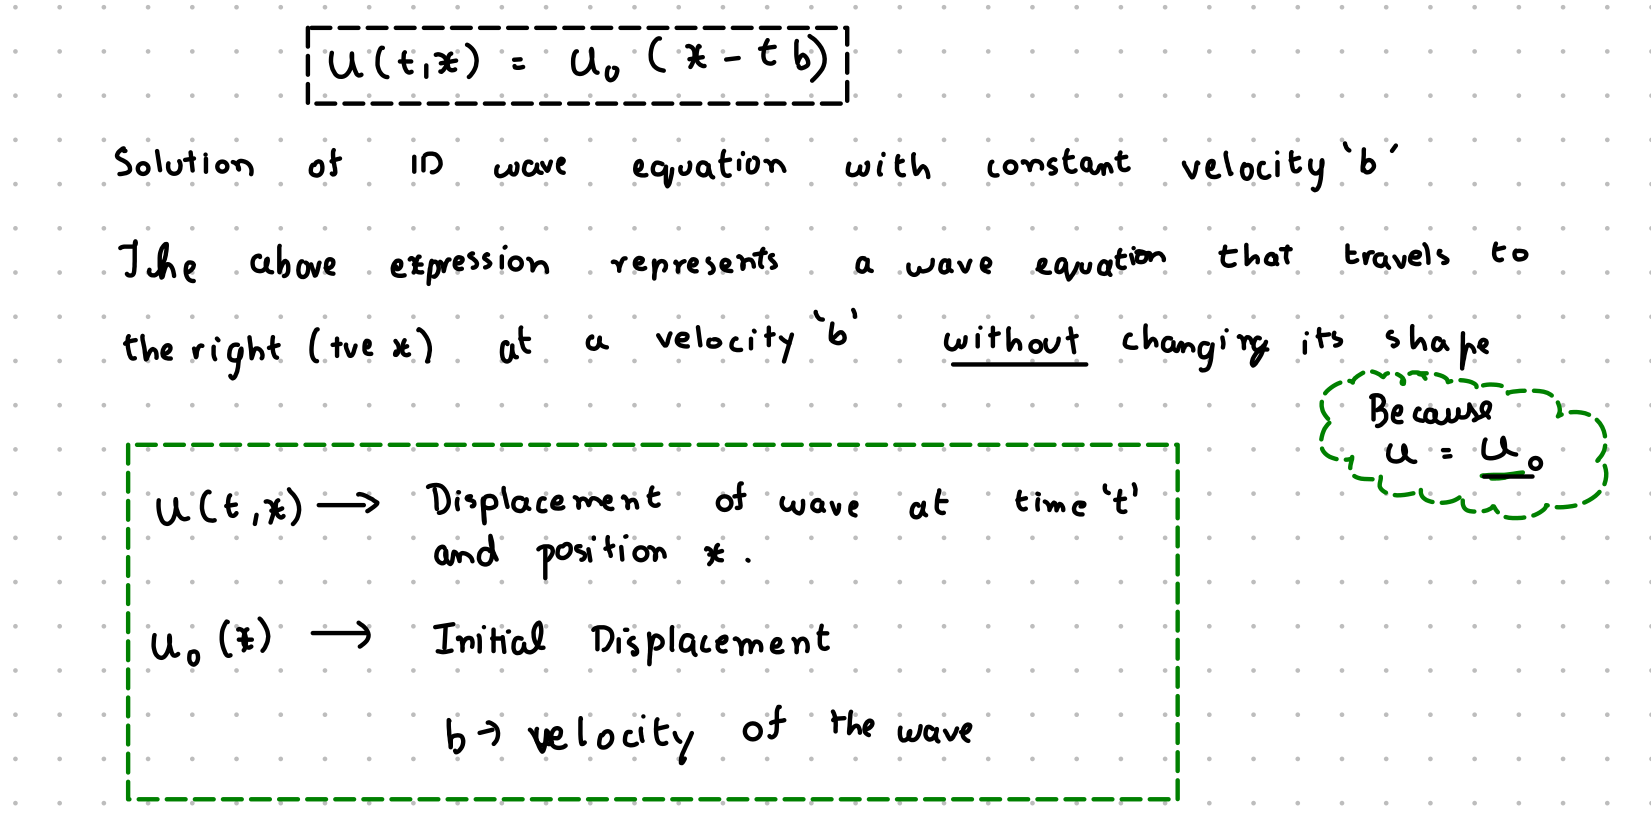 u(t,x) = u₀ (x - t b)
Solution of 1D wave equation with constant velocity 'b'
The above expression represents a wave equation that travels to
the right (+ve x) at a velocity 'b' without changing its shape
Because
u = u₀
u(t,x) → Displacement of wave at time 't'
and position x.
u₀(x) → Initial Displacement
b → velocity of the wave